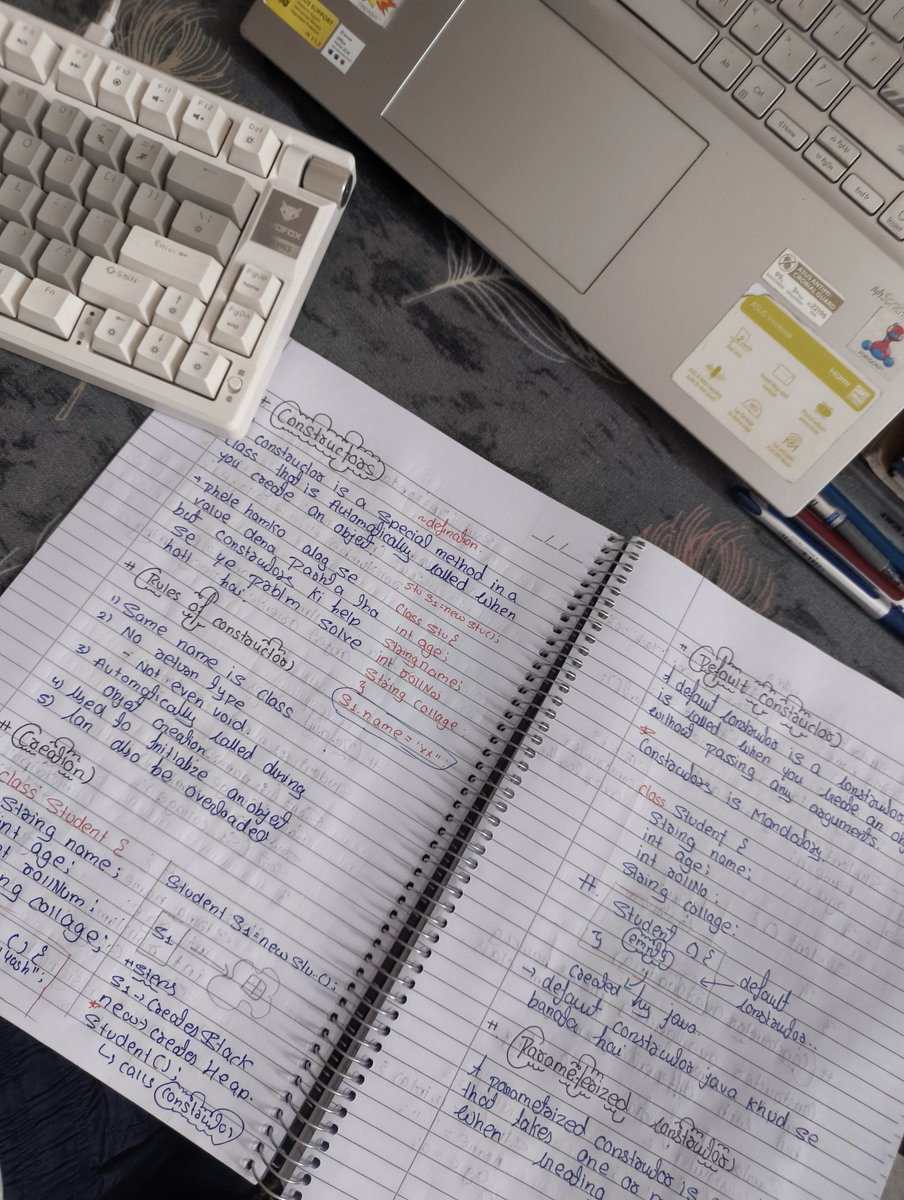 F10
F11
F12
Del
O
P
L
Enter
Shift
Fn
PgUp
Home
PgDn
end
Alt
Ctrl
Home
PgUp
PgDn
End
ASUS Vivobook
HDMI
# Constructors
constructor is a special method in a
class that is Automagically called when
you create an object.
~defination
→ Phele hamko alag se
value dena Padta tha
but constructors ki help
se ye Problm solve
hoti hai.
Stu S1 = new Stu();
Class Stu {
int age;
String name;
int rollNo
String Collage
}
S1.name = "xx"
# Rules of constructor
1) Same name is class
2) No return type
- Not even void.
3) Automagically called during
object creation
4) Used to initialize an object
5) Can also be overloaded
# Creation
class Student {
String name;
int age;
int rollNum;
String collage;
() {
"Yash";
Student S1 = new Stu();
S1
# Steps
S1 → Creates Black
new → creates Heap.
Student();
↳ calls constructor
# Default Constructor
A defaut constructor is a constructor
is called when you create an obj
without passing any arguments
* Constructors is Mandatory.
class Student {
String name;
int age;
int rollNo;
String collage:
#
Student () {
empty
}
← default
constructor..
created by java.
→ default constructor java khud se
banata hai
# Parameterized Constructor
A parametrized constructor is
that takes one or
when creating